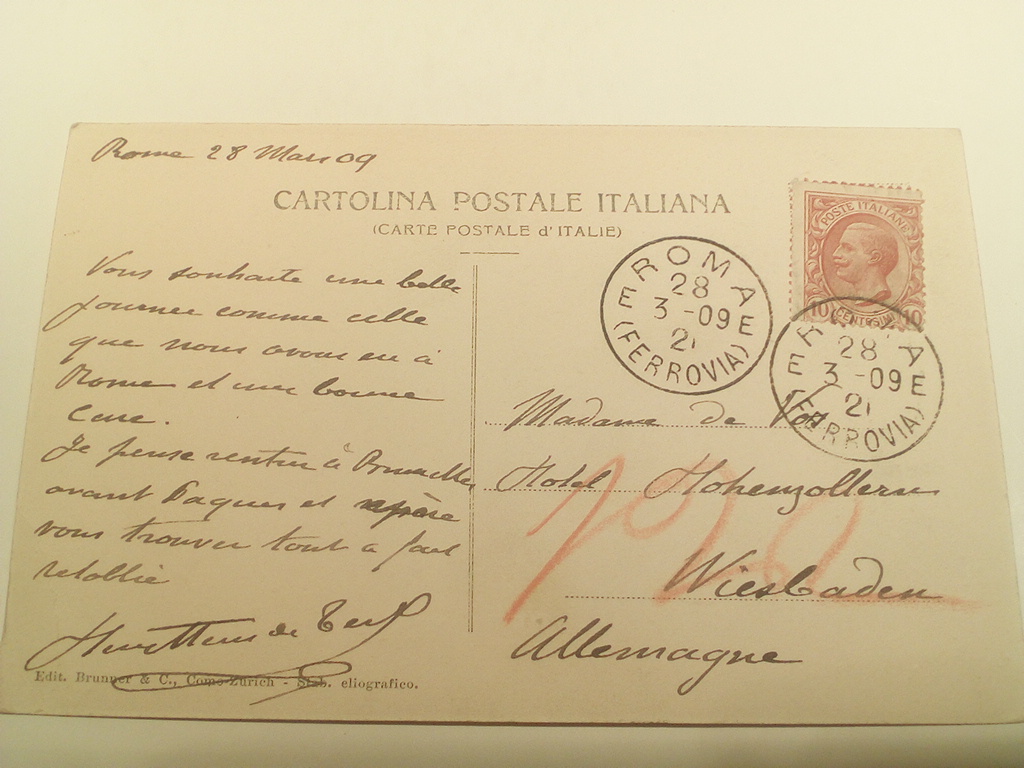 Rome 28 Mars 09
CARTOLINA POSTALE ITALIANA
(CARTE POSTALE d'ITALIE)
Vous souhaite une belle
journée comme celle
que nous avons eu à
Rome et une bonne
cure.
Je pense rentrer à Bruxelles
avant Paques et espère
vous trouver tout a fait
retablie
de
Edit. Brunner & C., Como-Zurich - Stab. eliografico.
POSTE ITALIANE
10 CENTESIMI 10
ROMA
28
3 -09
21
(FERROVIA)
ROMA
28
3 -09
21
(FERROVIA)
Madame de
Hotel Hohenzollern
Wiesbaden
Allemagne